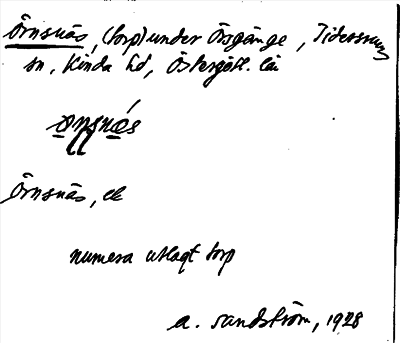 Örnsnäs, (torp) under Örsgänge, Tidersrums
sn, Kinda hd, Östergötl. län
Örnsnäs, ek
numera utlagt torp
A. Sandström, 1928